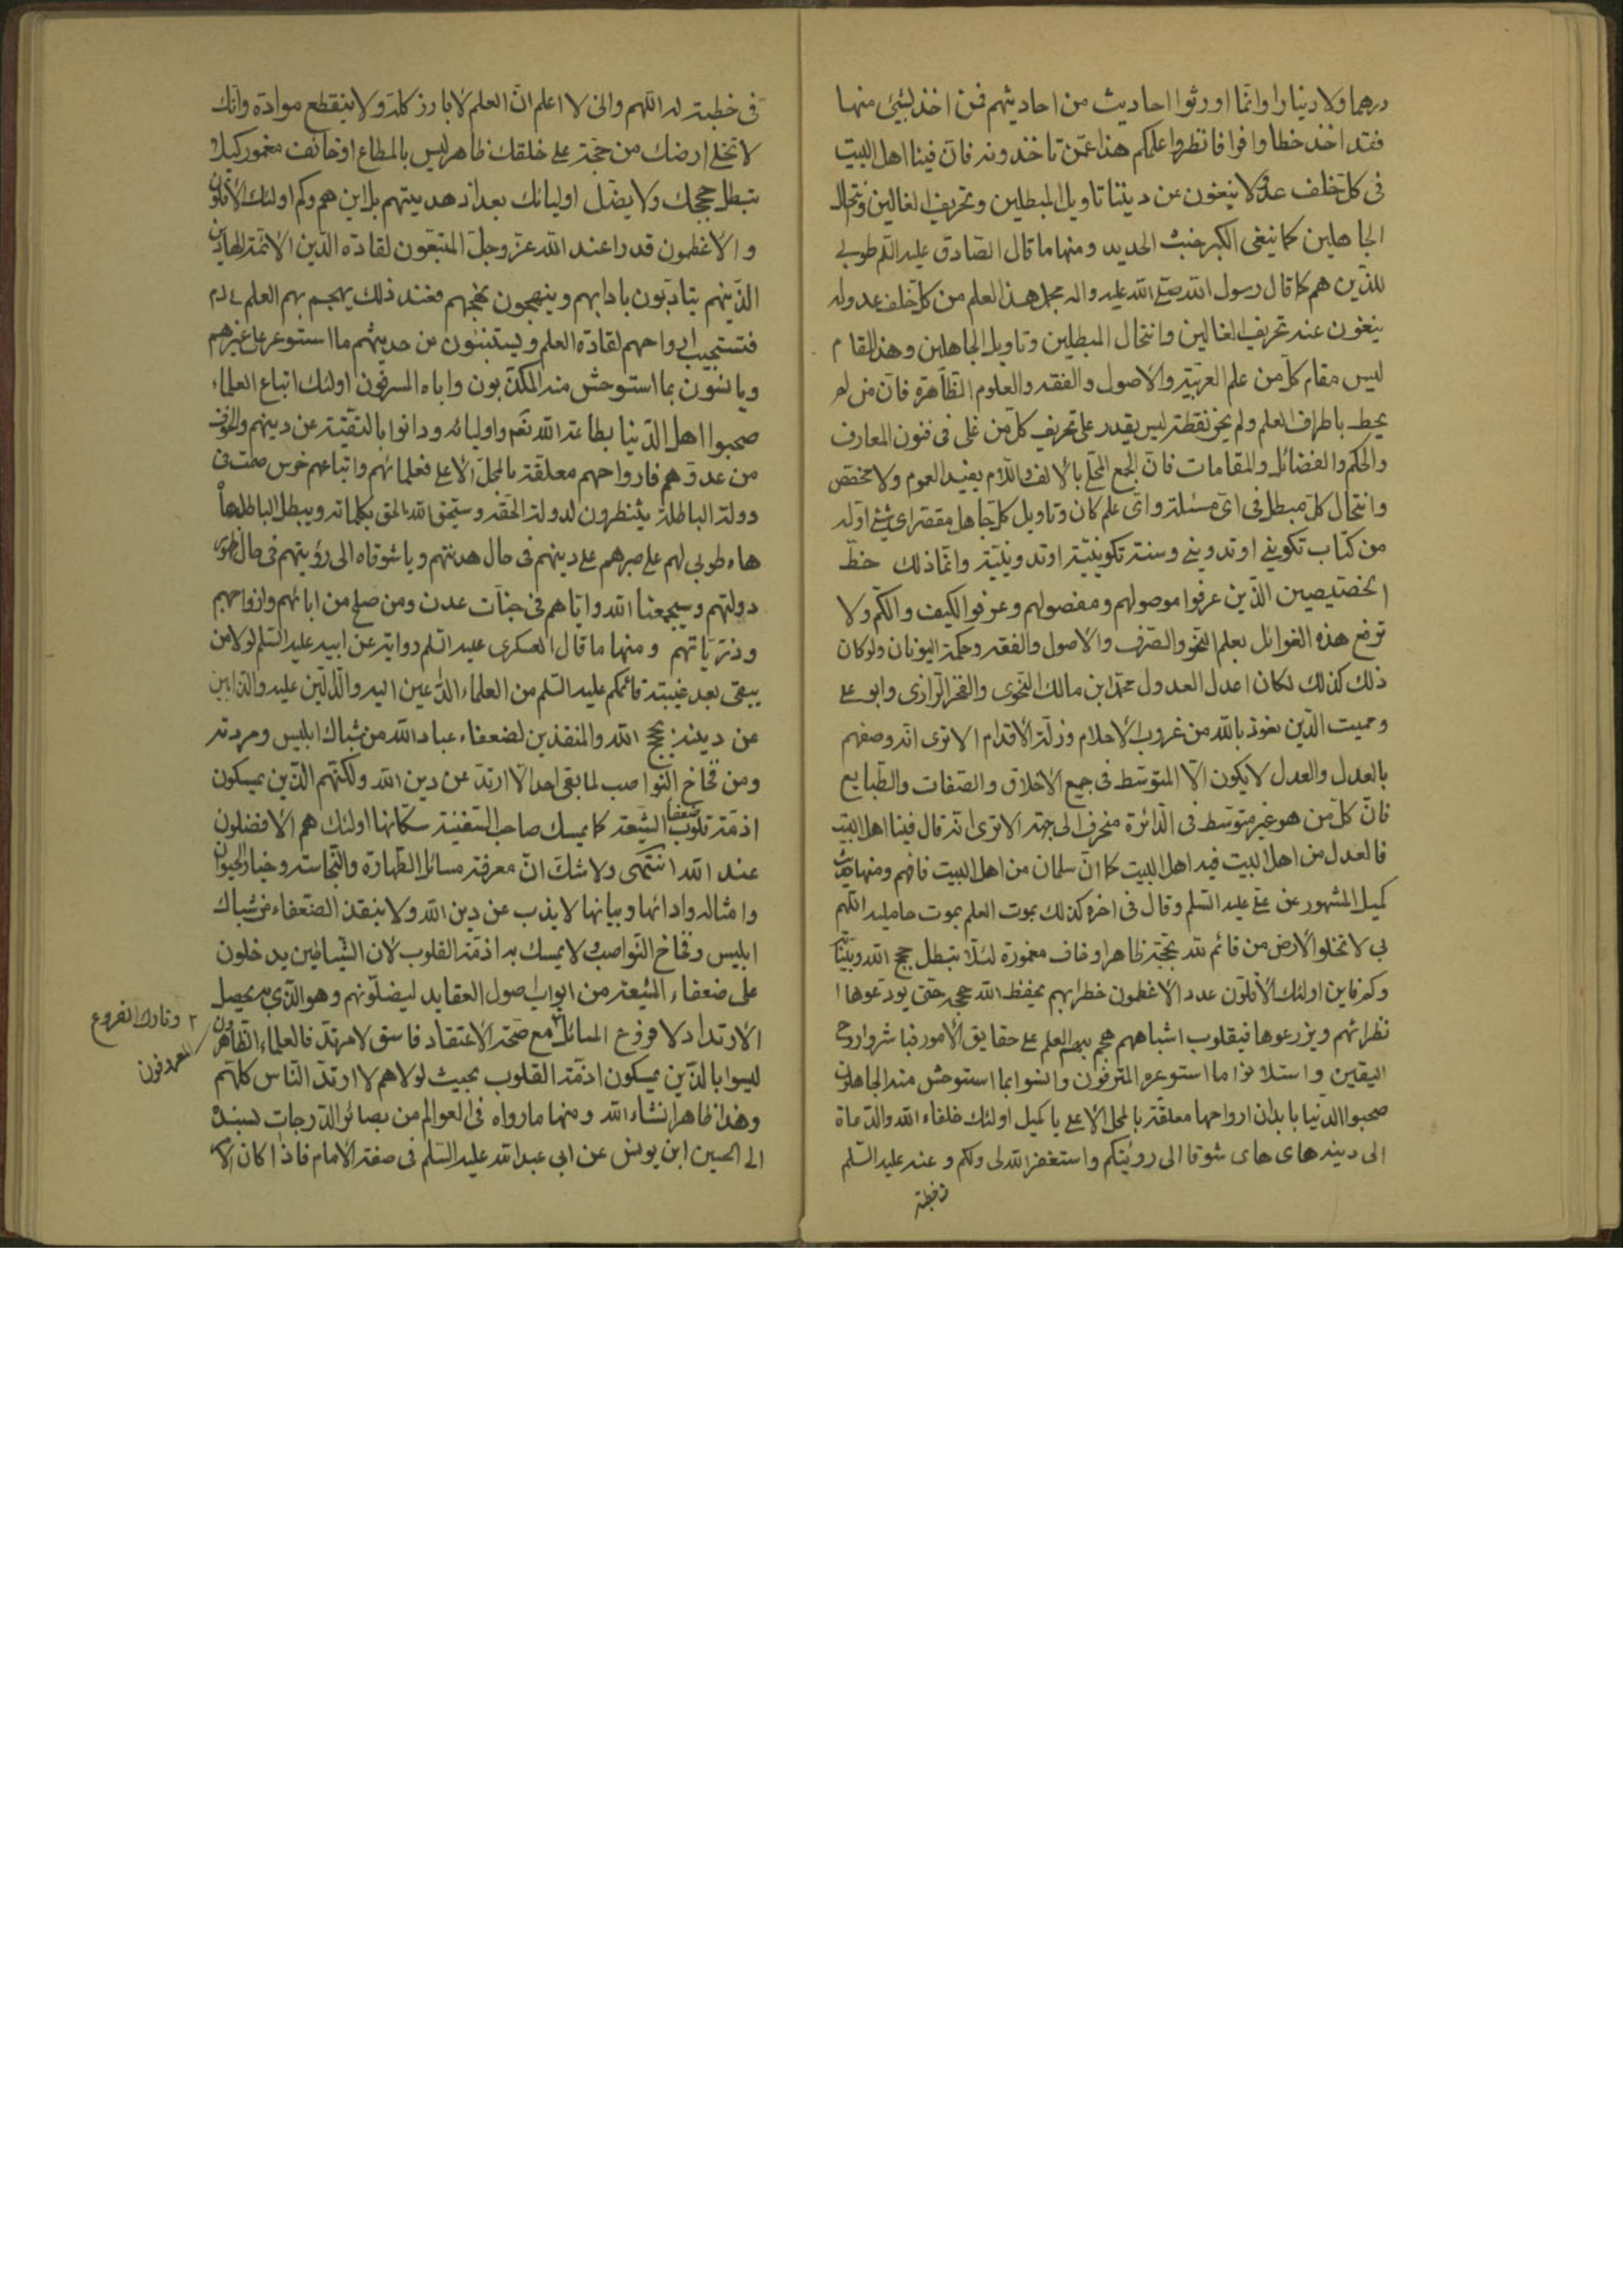 درهما ولا دينارا وانّما اورثوا احاديث من احاديثهم فمن اخذ بشئ منها
فقد اخذ حظا وافرا فانظروا علمكم هذا عمّن تاخذونه فان فينا اهل البيت
فى كل خلف عدولا ينفون عن ديننا تاويل المبطلين وتحريف الغالين وانتحال
الجاهلين كما ينفى الكير خبث الحديد ومنها ما قال الصّادق عليه السّلم طوبى
للذّين هم كما قال رسول الله صلّى الله عليه واله يحمل هذا العلم من كلّ خلف عدوله
ينفون عنه تحريف الغالين وانتحال المبطلين وتاويل الجاهلين وهذا المقام
ليس مقام كلّ من علم العربيّة والاصول والفقه والعلوم الظّاهرة فانّ من لم
يحط باطراف العلم ولم يحز نقطته ليس يقدر على تحريف كلّ من غلى فى فنون المعارف
والحكم والفضائل والمقامات فانّ الجمع المحلّى بالالف واللّام يفيد العموم ولا مخصّص
وانتحال كلّ مبطل فى اىّ مسئلة واىّ علم كان وتاويل كلّ جاهل مقصّر اى شئ اوّله
من كتاب تكوينى او تدوينى وسنة تكوينيّة او تدوينيّة وانّما ذلك حظّ
الخصّيصين الذّين عرفوا موصولهم ومفصولهم وعرفوا الكيف والكّم ولا
ترفع هذه الغوائل بعلم النّحو والصّرف والاصول والفقه وحكمة اليونان ولو كان
ذلك كذلك لكان اعدل العدول محمّد ابن مالك النّحوى والفخر الرّازى وابو على
ومميت الدّين نعوذ بالله من غروب الاحلام وزلّة الاقدام الا ترى انّه وصفهم
بالعدل والعدل لا يكون الّا المتوسّط فى جميع الاخلاق والصّفات والطّبايع
فانّ كلّ من هو غير متوسّط فى الدّائرة منحرف الى جهة الا ترى انّه قال فينا اهل البيت
فالعدل من اهل البيت فيه اهل البيت كما انّ سلمان من اهل البيت فافهم ومنها حديث
كميل المشهور عن علىّ عليه السّلم وقال فى اخره كذلك يموت العلم بموت حامليه اللّهم
بلى لا تخلوا الارض من قائم لله بحجّة ظاهر او خاف مغمورة لئلّا تبطل حجج الله وبيّناته
وكم واين اولئك الاقلّون عددا الاعظمون خطرا بهم يحفظ الله حججه حتى يودعوها
نظرائهم ويزرعوها فى قلوب اشباههم هجم بهم العلم على حقايق الامور فباشروا روح
اليقين واستلانوا ما استوعره المترفون وانسوا بما استوحش منه الجاهلون
صحبوا الدنيا بابدان ارواحها معلّقة بالمحل الاعلى يا كميل اولئك خلفاء الله والدّعاة
الى دينه هاى هاى شوقا الى رؤيتكم واستغفر الله لى ولكم وعنه عليه السّلم
فى خطبة
فى خطبة له اللّهم وانى لا اعلم انّ العلم لا يارز كلّه ولا ينقطع موادّه وانّك
لا تخلى ارضك من حجّة على خلقك ظاهر ليس بالمطاع او خائف مغمور كيلا
تبطل حججك ولا يضلّ اوليائك بعد اذ هديتهم بل اين هم وكم اولئك الاقلّون
والاعظمون قدرا عند الله عزّ وجلّ المتبعون لقادة الدّين الائمّة الهادين
الذّينهم يتادّبون بادابهم وينهجون نهجهم فعند ذلك يهجم بهم العلم
فتستجيب ارواحهم لقادة العلم ويستلينون من حديثهم ما استوعر على غيرهم
ويانسون بما استوحش منه المكذّبون واباه المسرفون اولئك اتباع العلماء
صحبوا اهل الدّنيا بطاعة الله تعم واوليائه ودانوا بالتّقيّة عن دينهم والخوف
من عدوّهم فارواحهم معلّقة بالمحلّ الاعلى فعلمائهم واتباعهم خرس صمت فى
دولة الباطل ينتظرون لدولة الحق وسيحق الله الحق بكلماته ويبطل الباطل ها
هاه طوبى لهم على صبرهم على دينهم فى حال هدنتهم ويا شوقاه الى رؤيتهم فى حال ظهور
دولتهم وسيجمعنا الله وايّاهم فى جنّات عدن ومن صلح من ابائهم وازواجهم
وذرّيّاتهم ومنها ما قال العسكرى عليه السّلم رواية عن ابيه عليه السّلم لولا من
يبقى بعد غيبة قائمكم عليه السّلم من العلماء الدّاعين اليه والدّالّين عليه والذّابين
عن دينه بحجج الله والمنقذين لضعفاء عباد الله من شباك ابليس ومردته
ومن فخاخ النّواصب لما بقى احد الّا ارتدّ عن دين الله ولكنّهم الذّين يمسكون
ازمّة قلوب ضعفاء الشّيعة كما يمسك صاحب السّفينة سكّانها اولئك هم الافضلون
عند الله انتهى ولا شكّ انّ معرفة مسائل الطّهارة والنّجاسة وخيار الحيوان
وامثاله وادائها وبيانها لا يذبّ عن دين الله ولا ينقذ الضّعفاء من شباك
ابليس وفخاخ النّواصب ولا يمسك به ازمّة القلوب لان الشّياطين يدخلون
على ضعفاء الشّيعة من ابواب اصول العقايد ليضلّونهم وهو الذّى به يحصل
الارتداد لا فروع المسائل مع صحّة الاعتقاد فاسق لا مرتدّ فالعلماء الظّاهرون
٢ وتارك الفروع
ليسوا بالذّين يمسكون ازمّة القلوب بحيث لولاهم لارتدّ النّاس كلّهم
وهذا ظاهر انشاء الله ومنها ما رواه فى العوالم من بصائر الدّرجات بسنده
الى الحسين ابن يونس عن ابى عبد الله عليه السّلم فى صفة الامام فاذا كان